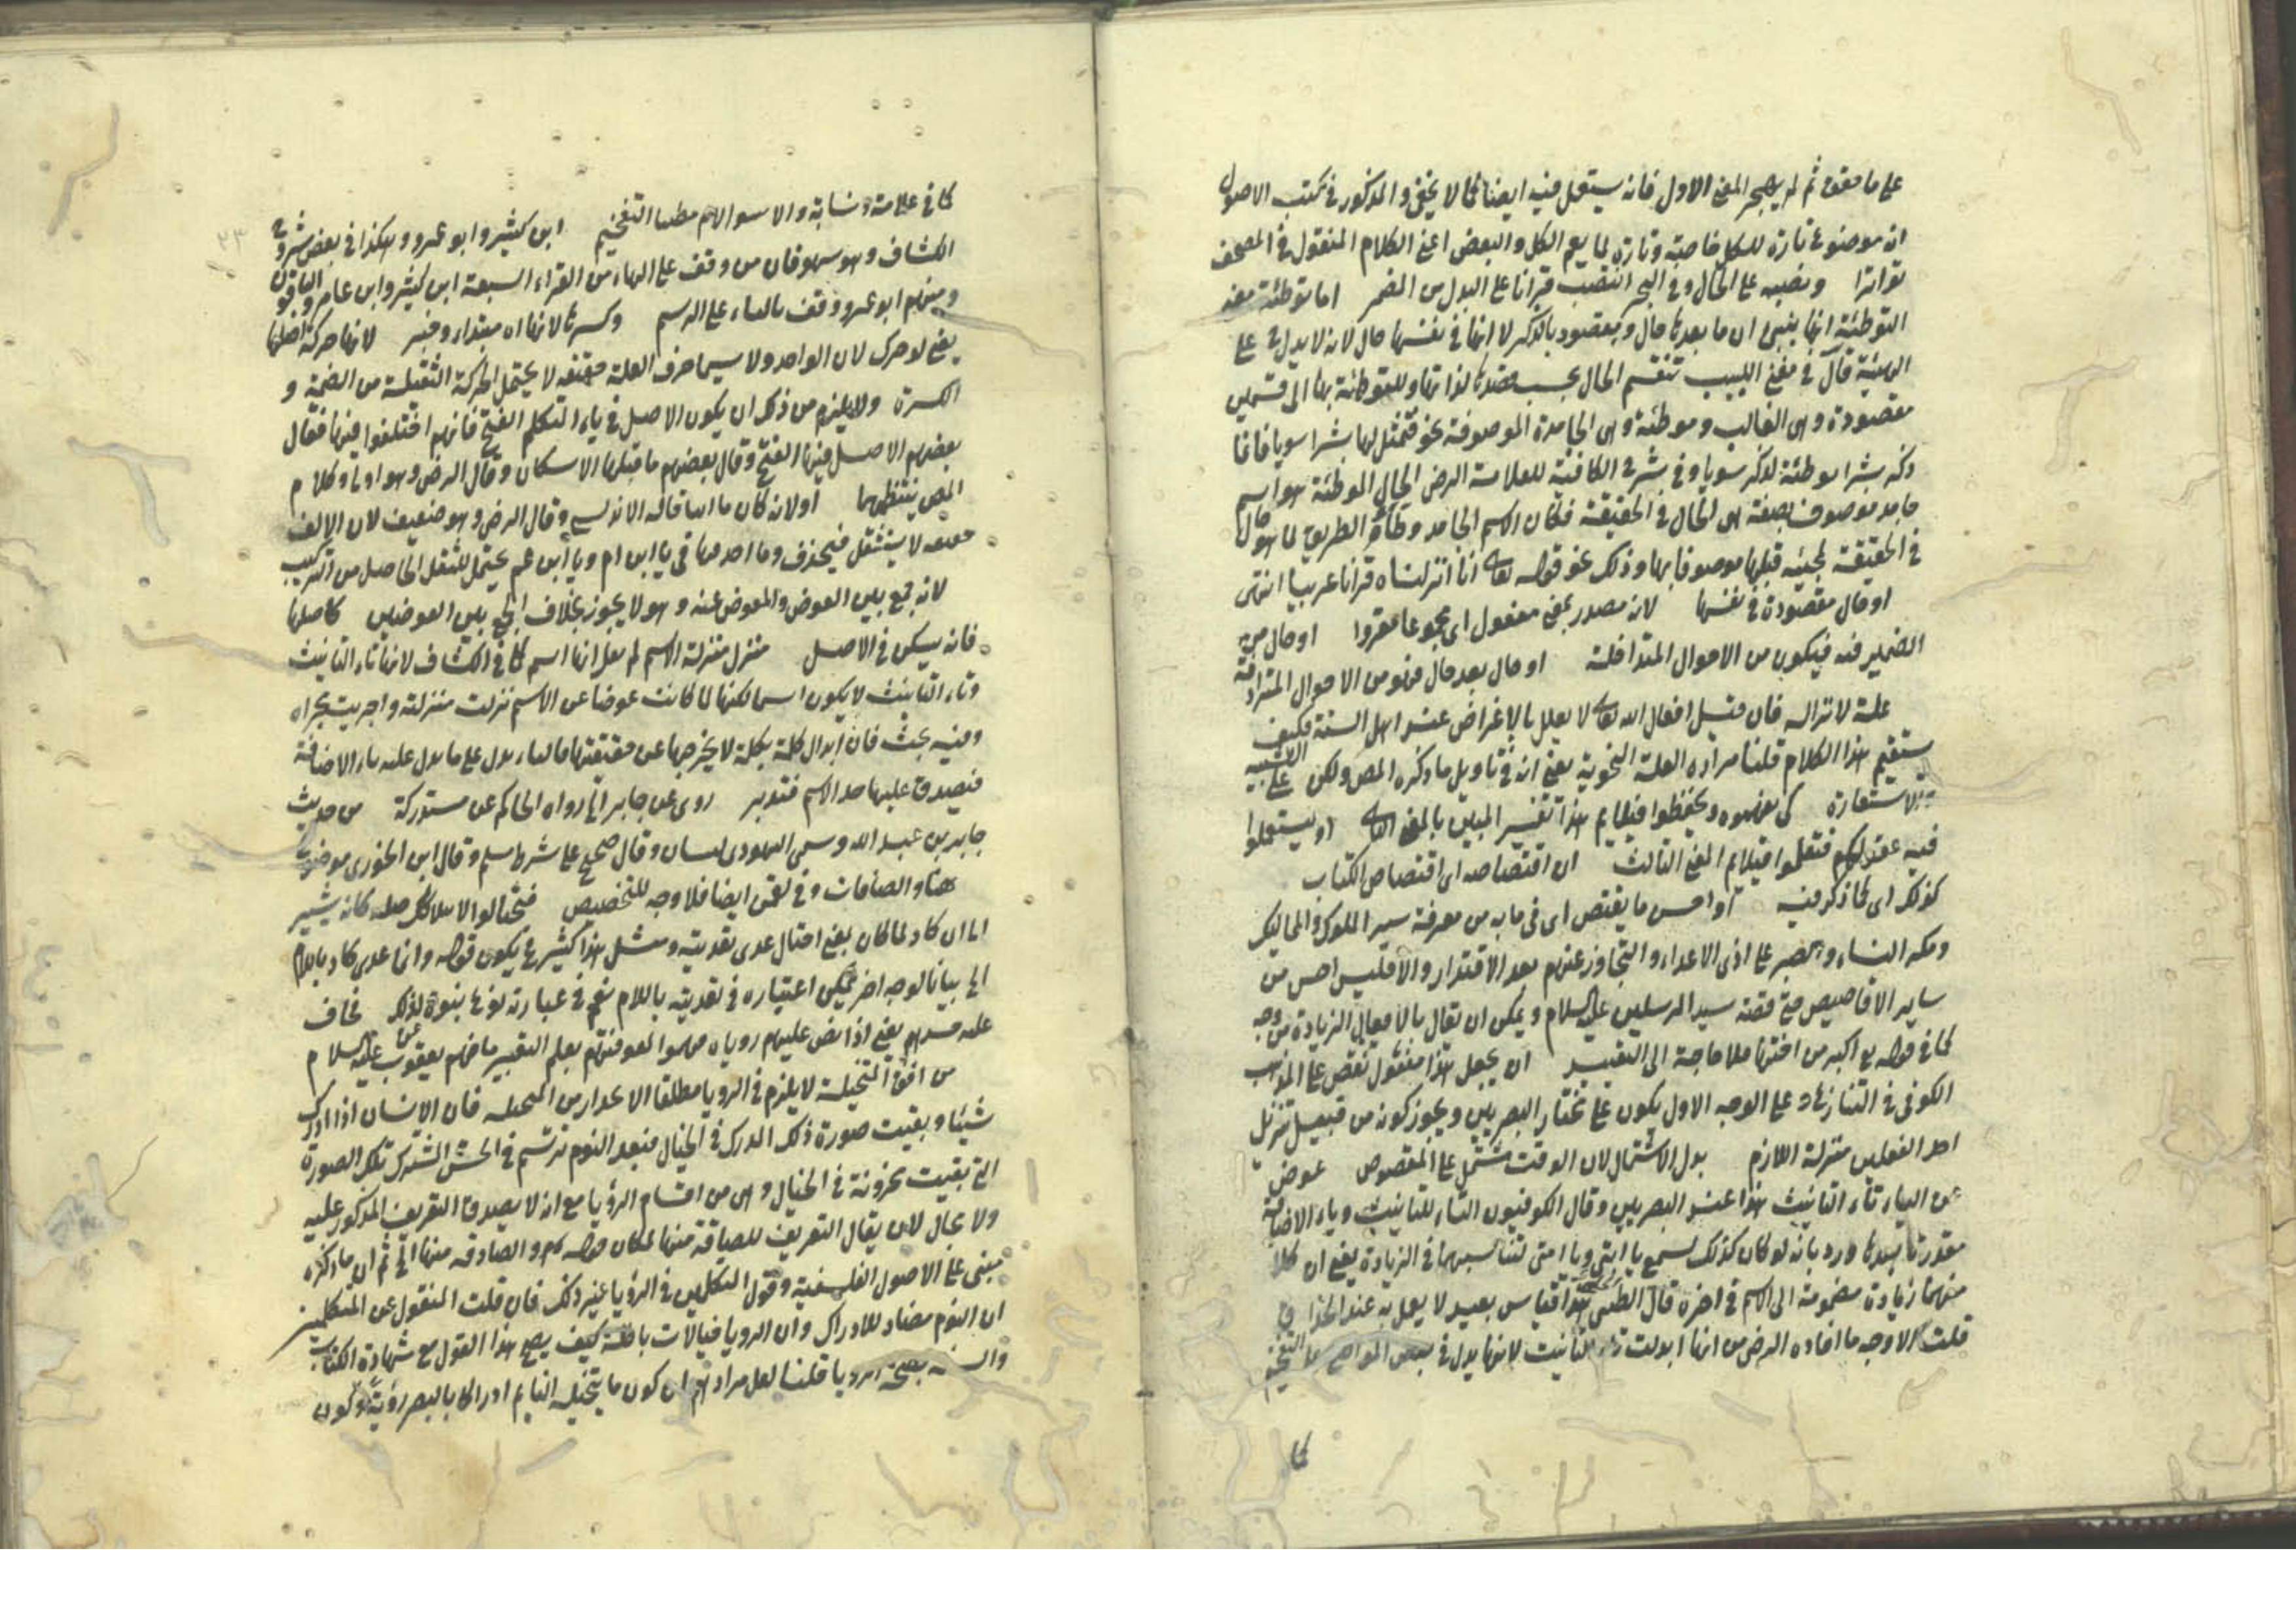 على ما حقق ثم لم يهجر المعنى الاول فانه يستعمل فيه ايضا كما لا يخفى والمذكور في كتب الاصول
انه موضوع تارة للكل خاصة وتارة لما يعم الكل والبعض اعني الكلام المنقول في المصحف
تواترا ونصبه على الحال وفي البحر انتصب قرانا على البدل من الضمير اما توطئة معنى
التوطئة انها ينبئ ان ما بعدها حال ومقصود بالذكر لا انها في نفسها حال لانه لا يدل على
الهيئة قال في مغني اللبيب تنقسم الحال بحسب قصدها لذاتها وللتوطئة بها الى قسمين
مقصودة وهي الغالب وموطئة وهي الجامدة الموصوفة نحو فتمثل لها بشرا سويا فانما
ذكر بشرا توطئة لذكر سويا وفي شرح الكافية للعلامة الرضي الحال الموطئة هو اسم
جامد موصوف بصفة هي الحال في الحقيقة فكان الاسم الجامد وطأ الطريق لما هو حال
في الحقيقة لمجيئه قبلها موصوفا بها وذلك نحو قوله تعالى انا انزلناه قرانا عربيا انتهى
او حال مقصودة في نفسها لانه مصدر بمعنى مفعول اي مجموعا مقروا او حال من
الضمير فيه فيكون من الاحوال المتداخلة او حال بعد حال فهو من الاحوال المترادفة
علة لانزاله فان قيل افعال الله تعالى لا يعلل بالاغراض عند اهل السنة فكيف
يستقيم هذا الكلام قلنا مراده العلة النحوية يعني انه في تاويل ما ذكره المص ولكن على التشبيه
والاستعارة كي تفهموه وتحفظوا فيلايم هذا تفسير المبين بالمعنى الثاني او يستعملوا
فيه عقولكم فتعلموا فيلايم المعنى الثالث ان اقتصاصه اي اقتصاص الكتاب
كذلك اي كما ذكر فيه او احسن ما يقتص اي في بابه من معرفة سير الملوك والمماليك
ومكر النساء والصبر على اذى الاعداء والتجاوز عنهم بعد الاقتدار والا فليس احسن من
ساير الاقاصيص حتى قصة سيد المرسلين عليه السلام ويمكن ان يقال بالافعال الزيادة من وجه
كما في قوله اكبر من اختها فلا حاجة الى التقييد ان يجعل هذا مفعول نقص على المذهب
الكوفي في التنازع وعلى الوجه الاول يكون على مختار البصريين ويجوز كونه من قبيل تنزيل
احد الفعلين منزلة اللازم بدل الاشتمال لان الوقت مشتمل على المقصوص عوض
عن الياء تاء التانيث هذا عند البصريين وقال الكوفيون التاء للتانيث وياء الاضافة
مقدرة بعدها ورد بانه لو كان كذلك لسمع يا ابتي ويا امتي لتناسبهما في الزيادة يعني ان كلا
منهما زيادة مضمومة الى الاسم في اخره قال الطيبي هذا قياس بعيد لا يعمل به عند الحذاق
قلت الاوجه ما افاده الرضي من انها ابدلت تاء التانيث لانها يدل في بعض المواضع على التفخيم
كما
كما في علامة ونسابة والاب والام مظنتا التفخيم ابن كثير وابو عمرو وهكذا في بعض شروح
الكشاف وهو سهو فان من وقف على الهاء من القراء السبعة ابن كثير وابن عامر والباقون
ومنهم ابو عمرو وقف بالتاء على الرسم وكسرها لانها اه مبتداء وخبر لانها حركة اصلها
يعني لو حرك لان الواحد ولا سيما حرف العلة لا يحتمل الحركة الثقيلة من الضمة و
الكسرة ولا يلزم من ذلك ان يكون الاصل في ياء المتكلم الفتح فانهم اختلفوا فيها فقال
بعضهم الاصل فيها الفتح وقال بعضهم ما قبلها الاسكان وقال الرضي وهو اولى وكلام
المص ينتظمهما او لانه كان يا ابتا قاله الاندلسي وقال الرضي وهو ضعيف لان الالف
خفيفة لا يستثقل فيحذف وما احد فيها في يا ابن ام ويا ابن عم يحتمل للثقل الحاصل من التركيب
لانه جمع بين العوض والمعوض عنه وهو لا يجوز بخلاف الجمع بين العوضين كاصلها
فانه يسكن في الاصل منزل منزلة الاسم لم يقل انها اسم كما في الكشاف لانها تاء التانيث
وتاء التانيث لا يكون اسما لكنها لما كانت عوضا عن الاسم نزلت منزلته واجريت مجراه
وفيه بحث فان ابدال كلمة بكلمة لا يخرجها عن حقيقتها فالتاء يدل على ما يدل عليه ياء الاضافة
فيصدق عليها حد الاسم فتدبر روى عن جابر الخ رواه الحاكم عن مستدركه من حديث
جابر بن عبد الله وسمى اليهودي بستان وقال صحيح على شرط مسلم وقال ابن الجوزي موضوع
هنا والصافات وفي لقمن ايضا فلا وجه للتخصيص فيحتالوا لاهلاكك حيلة كانه يشير
اما ان كاد لما كان بمعنى احتال عدى تعديته ومثل هذا كثير وحـ يكون قوله وانما عدى كاد باللام
الخ بيانا لوجه اخر يمكن اعتباره في تعديته باللام نعم في عبارته نوع نبوة لذلك فخاف
عليه حسدهم يعني اذا نص عليهم روياه حسدوا لمعرفتهم بعلم التعبير ما فهم يعقوب عليه السلام
من افق المتخيلة لا يلزم في الرويا مطلقا الانحدار من المتخيلة فان الانسان اذا ادرك
شيئا وبقيت صورة ذلك المدرك في الخيال فبعد النوم ترتسم في الحس المشترك تلك الصورة
التي بقيت مخزونة في الخيال وهي من اقسام الرؤيا مع انه لا يصدق التعريف المذكور عليه
ولا مجال لان يقال التعريف للصادقة منها لمكان قوله والصادقة منها الخ ثم ان ما ذكره
مبني على الاصول الفلسفية وقول المتكلمين في الرؤيا غير ذلك فان قلت المنقول عن المتكلمين
ان النوم مضاد للادراك وان الرويا خيالات باطلة كيف يصح هذا القول مع شهادة الكتاب
والسنة بصحة الرويا قلنا لعل مرادهم ان كون ما يتخيله النايم ادراكا بالبصر رؤية وكون